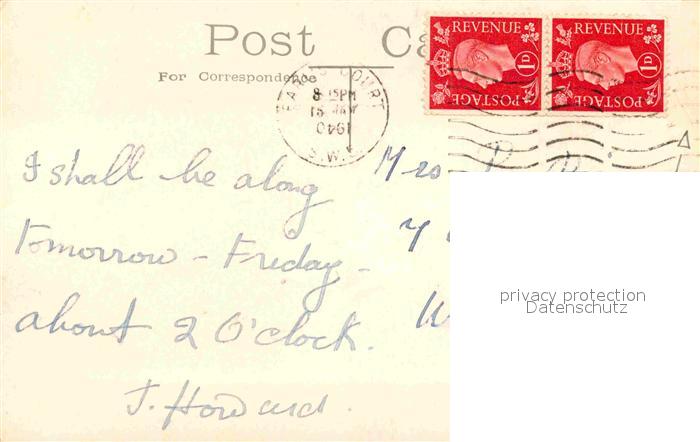 Post
For Correspondence
REVENUE
1D
POSTAGE
REVENUE
1D
POSTAGE
EARLS COURT
8 15 PM
1940
S.W.
I shall be along
tomorrow - Friday -
about 2 O'clock.
J. Howard.
Mrs
privacy protection
Datenschutz